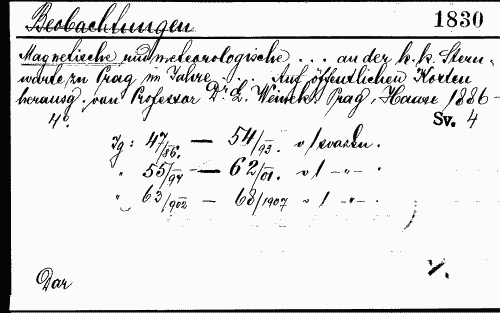 Beobachtungen 1830
Magnetische und meteorologische ... an der k. k. Stern-
warte zu Prag im Jahre .... Auf öffentlichen Kosten
herausg. von Professor Dr L. Weinek. Prag, Haase 1886-
4°. Sv. 4
Jg: 47/86. — 54/93 v 1 svazku.
" 55/94 — 62/01. v 1 -"- .
" 63/902 — 68/1907 v 1 -"- .
Dar